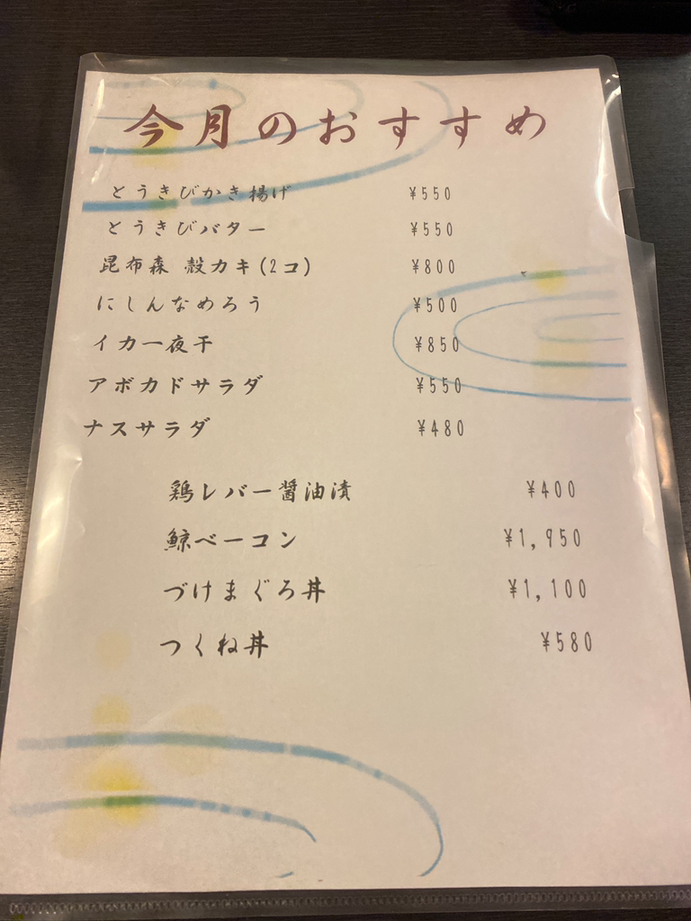 今月のおすすめ
とうきびかき揚げ ¥550
とうきびバター ¥550
昆布森 殻カキ(2コ) ¥800
にしんなめろう ¥500
イカ一夜干 ¥850
アボカドサラダ ¥550
ナスサラダ ¥480
鶏レバー醤油漬 ¥400
鯨ベーコン ¥1,950
づけまぐろ丼 ¥1,100
つくね丼 ¥580